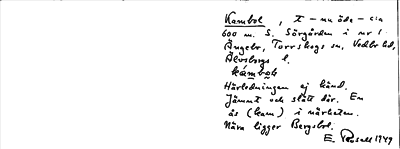 Kambol, t – nu öde – c:a
600 m. S. Sörgården i nr 1
Ängebr, Torrskogs sn, Vedbo hd,
Älvsborgs l.
kámbol
Härledningen ej känd.
Jämnt och slätt där. En
ås (kam) i närheten.
Nära ligger Bergsbol.
E. Rosell 1949